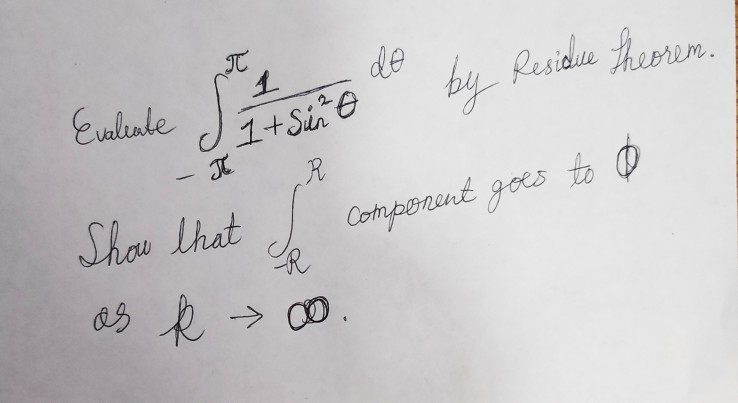 Evaluate ∫_{-π}^{π} 1/(1+Sin²θ) dθ by Residue Theorem.
Show that ∫_{-R}^{R} component goes to 0
as R → ∞.